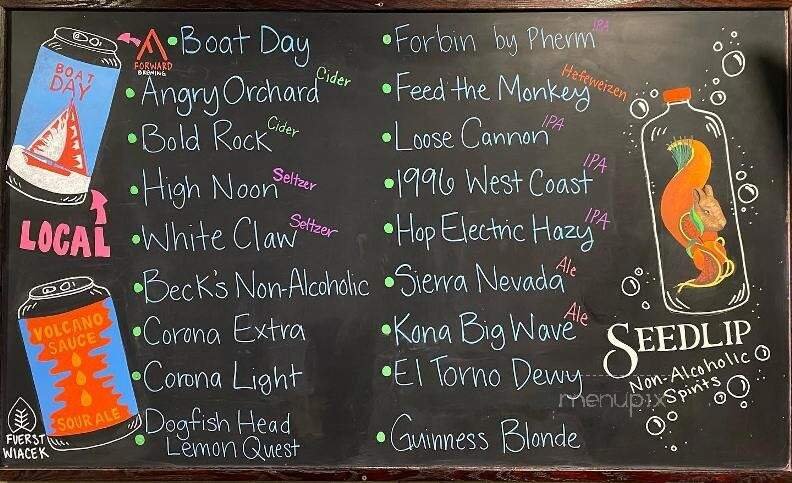 BOAT
DAY
LOCAL
VOLCANO
SAUCE
SOUR ALE
FUERST
WIACEK
FORWARD
BREWING
• Boat Day
• Angry Orchard Cider
• Bold Rock Cider
• High Noon Seltzer
• White Claw Seltzer
• Beck's Non-Alcoholic
• Corona Extra
• Corona Light
• Dogfish Head
Lemon Quest
• Forbin by Pherm IPA
• Feed the Monkey Hefeweizen
• Loose Cannon IPA
• 1996 West Coast IPA
• Hop Electric Hazy IPA
• Sierra Nevada Ale
• Kona Big Wave Ale
• El Torno Dewy
• Guinness Blonde
SEEDLIP
Non-Alcoholic
Spirits
menupix